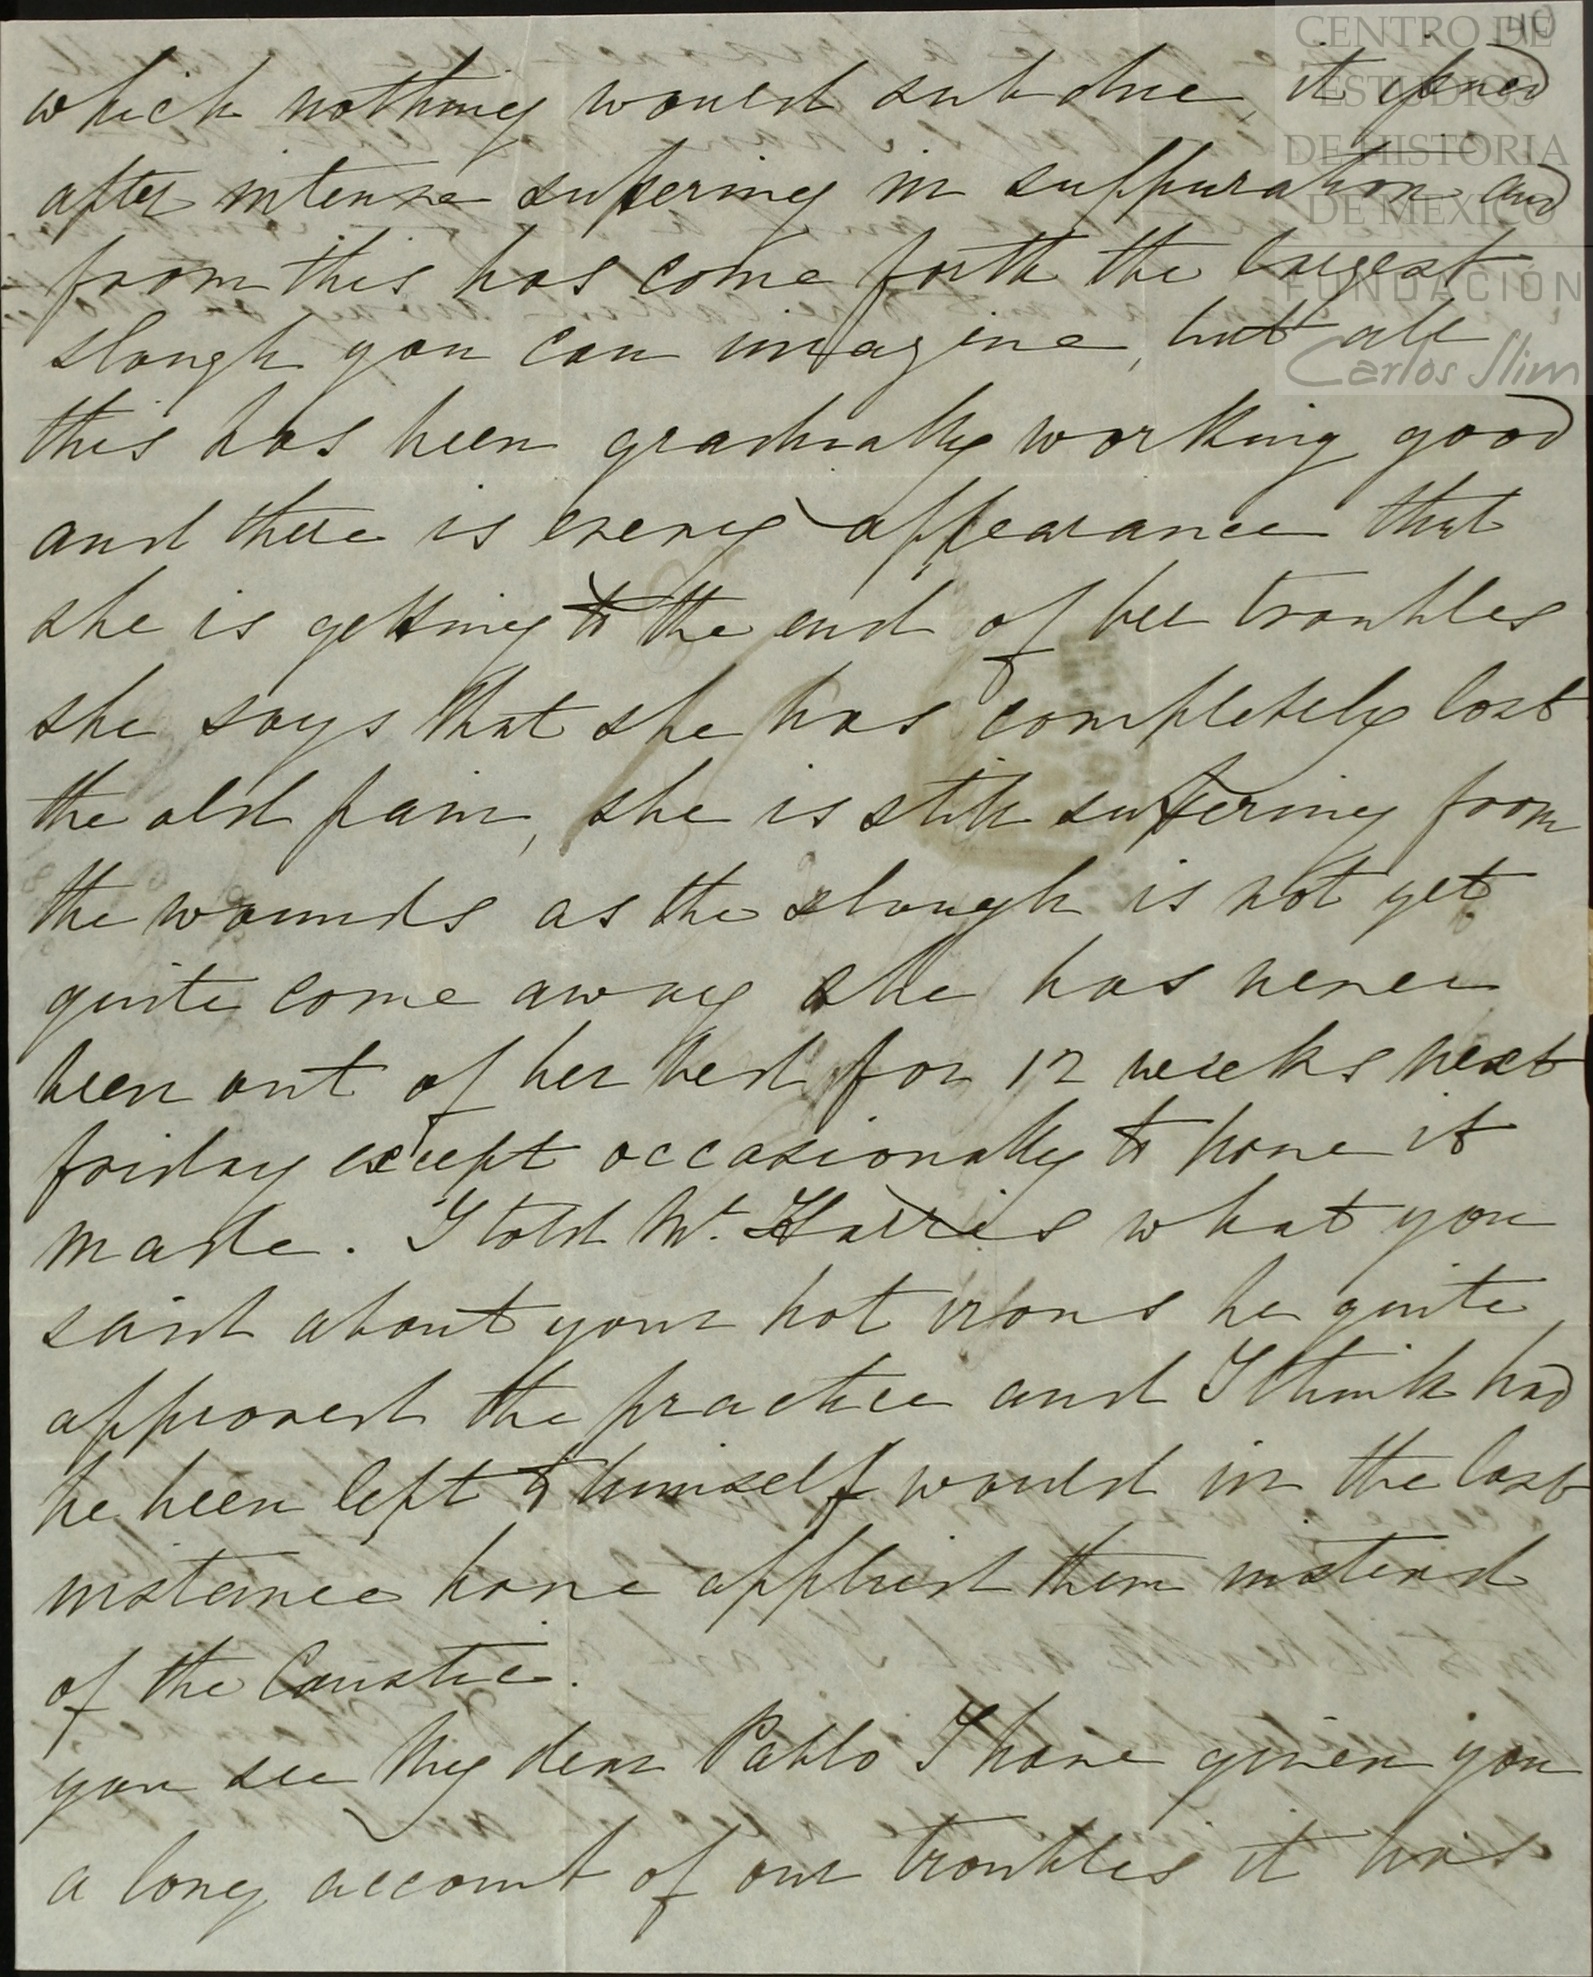 40
CENTRO DE
ESTUDIOS
DE HISTORIA
DE MEXICO
FUNDACIÓN
Carlos Slim
which nothing would subdue, it
after intense suffering in suppuration and
from this has come forth the largest
slough you can imagine, but all
this has been gradually working good
and there is every appearance that
she is getting to the end of her troubles
she says that she has completely lost
the old pain, she is still suffering from
the wounds as the slough is not yet
quite come away she has never
been out of her bed for 12 weeks next
friday except occasionally to have it
made. I told Mr. Harris what you
said about your hot irons he quite
approved the practice and I think had
he been left to himself would in the last
instance have applied them instead
of the Caustic.
you see My dear Pablo I have given you
a long account of our troubles it has